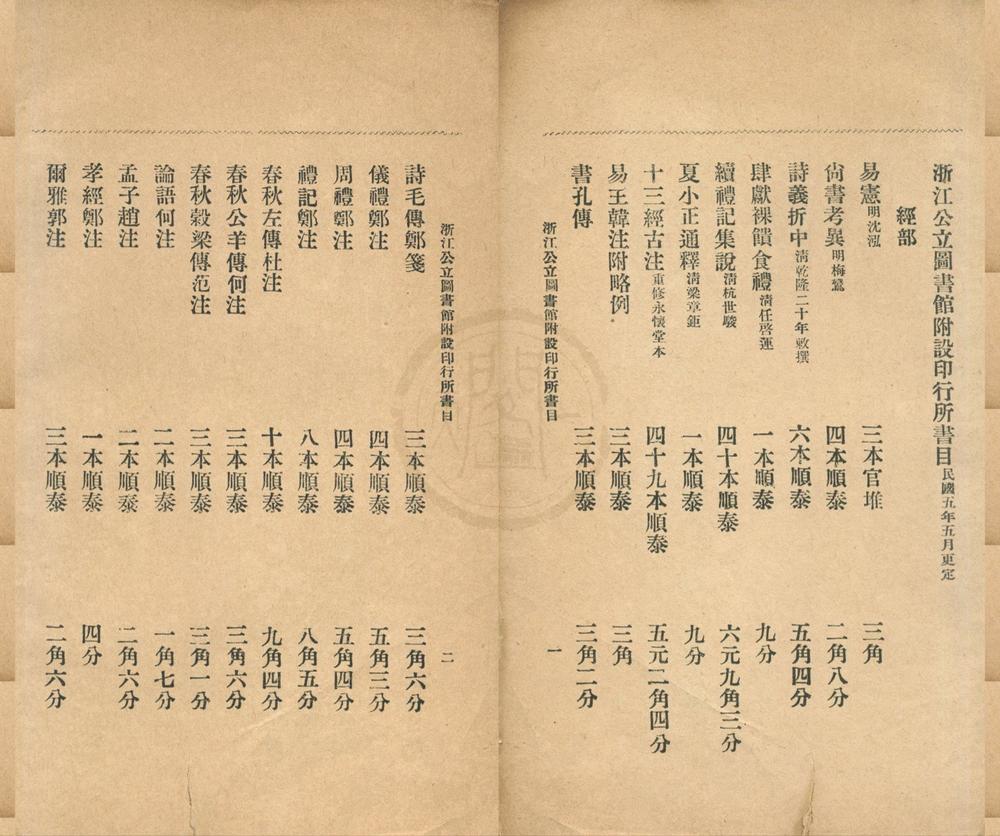 浙江公立圖書館附設印行所書目民國五年五月更定
經部
易憲明沈泓 三本官堆 三角
尙書考異明梅鷟 四本順泰 二角八分
詩義折中清乾隆二十年敕撰 六本順泰 五角四分
肆獻祼饋食禮清任啓運 一本順泰 九分
續禮記集說清杭世駿 四十本順泰 六元九角三分
夏小正通釋清梁章鉅 一本順泰 九分
十三經古注重修永懷堂本 四十九本順泰 五元二角四分
易王韓注附略例 三本順泰 三角
書孔傳 三本順泰 三角二分
浙江公立圖書館附設印行所書目 一
浙江公立圖書館附設印行所書目 二
詩毛傳鄭箋 三本順泰 三角六分
儀禮鄭注 四本順泰 五角三分
周禮鄭注 四本順泰 五角四分
禮記鄭注 八本順泰 八角五分
春秋左傳杜注 十本順泰 九角四分
春秋公羊傳何注 三本順泰 三角六分
春秋穀梁傳范注 三本順泰 三角一分
論語何注 二本順泰 一角七分
孟子趙注 二本順泰 二角六分
孝經鄭注 一本順泰 四分
爾雅郭注 三本順泰 二角六分